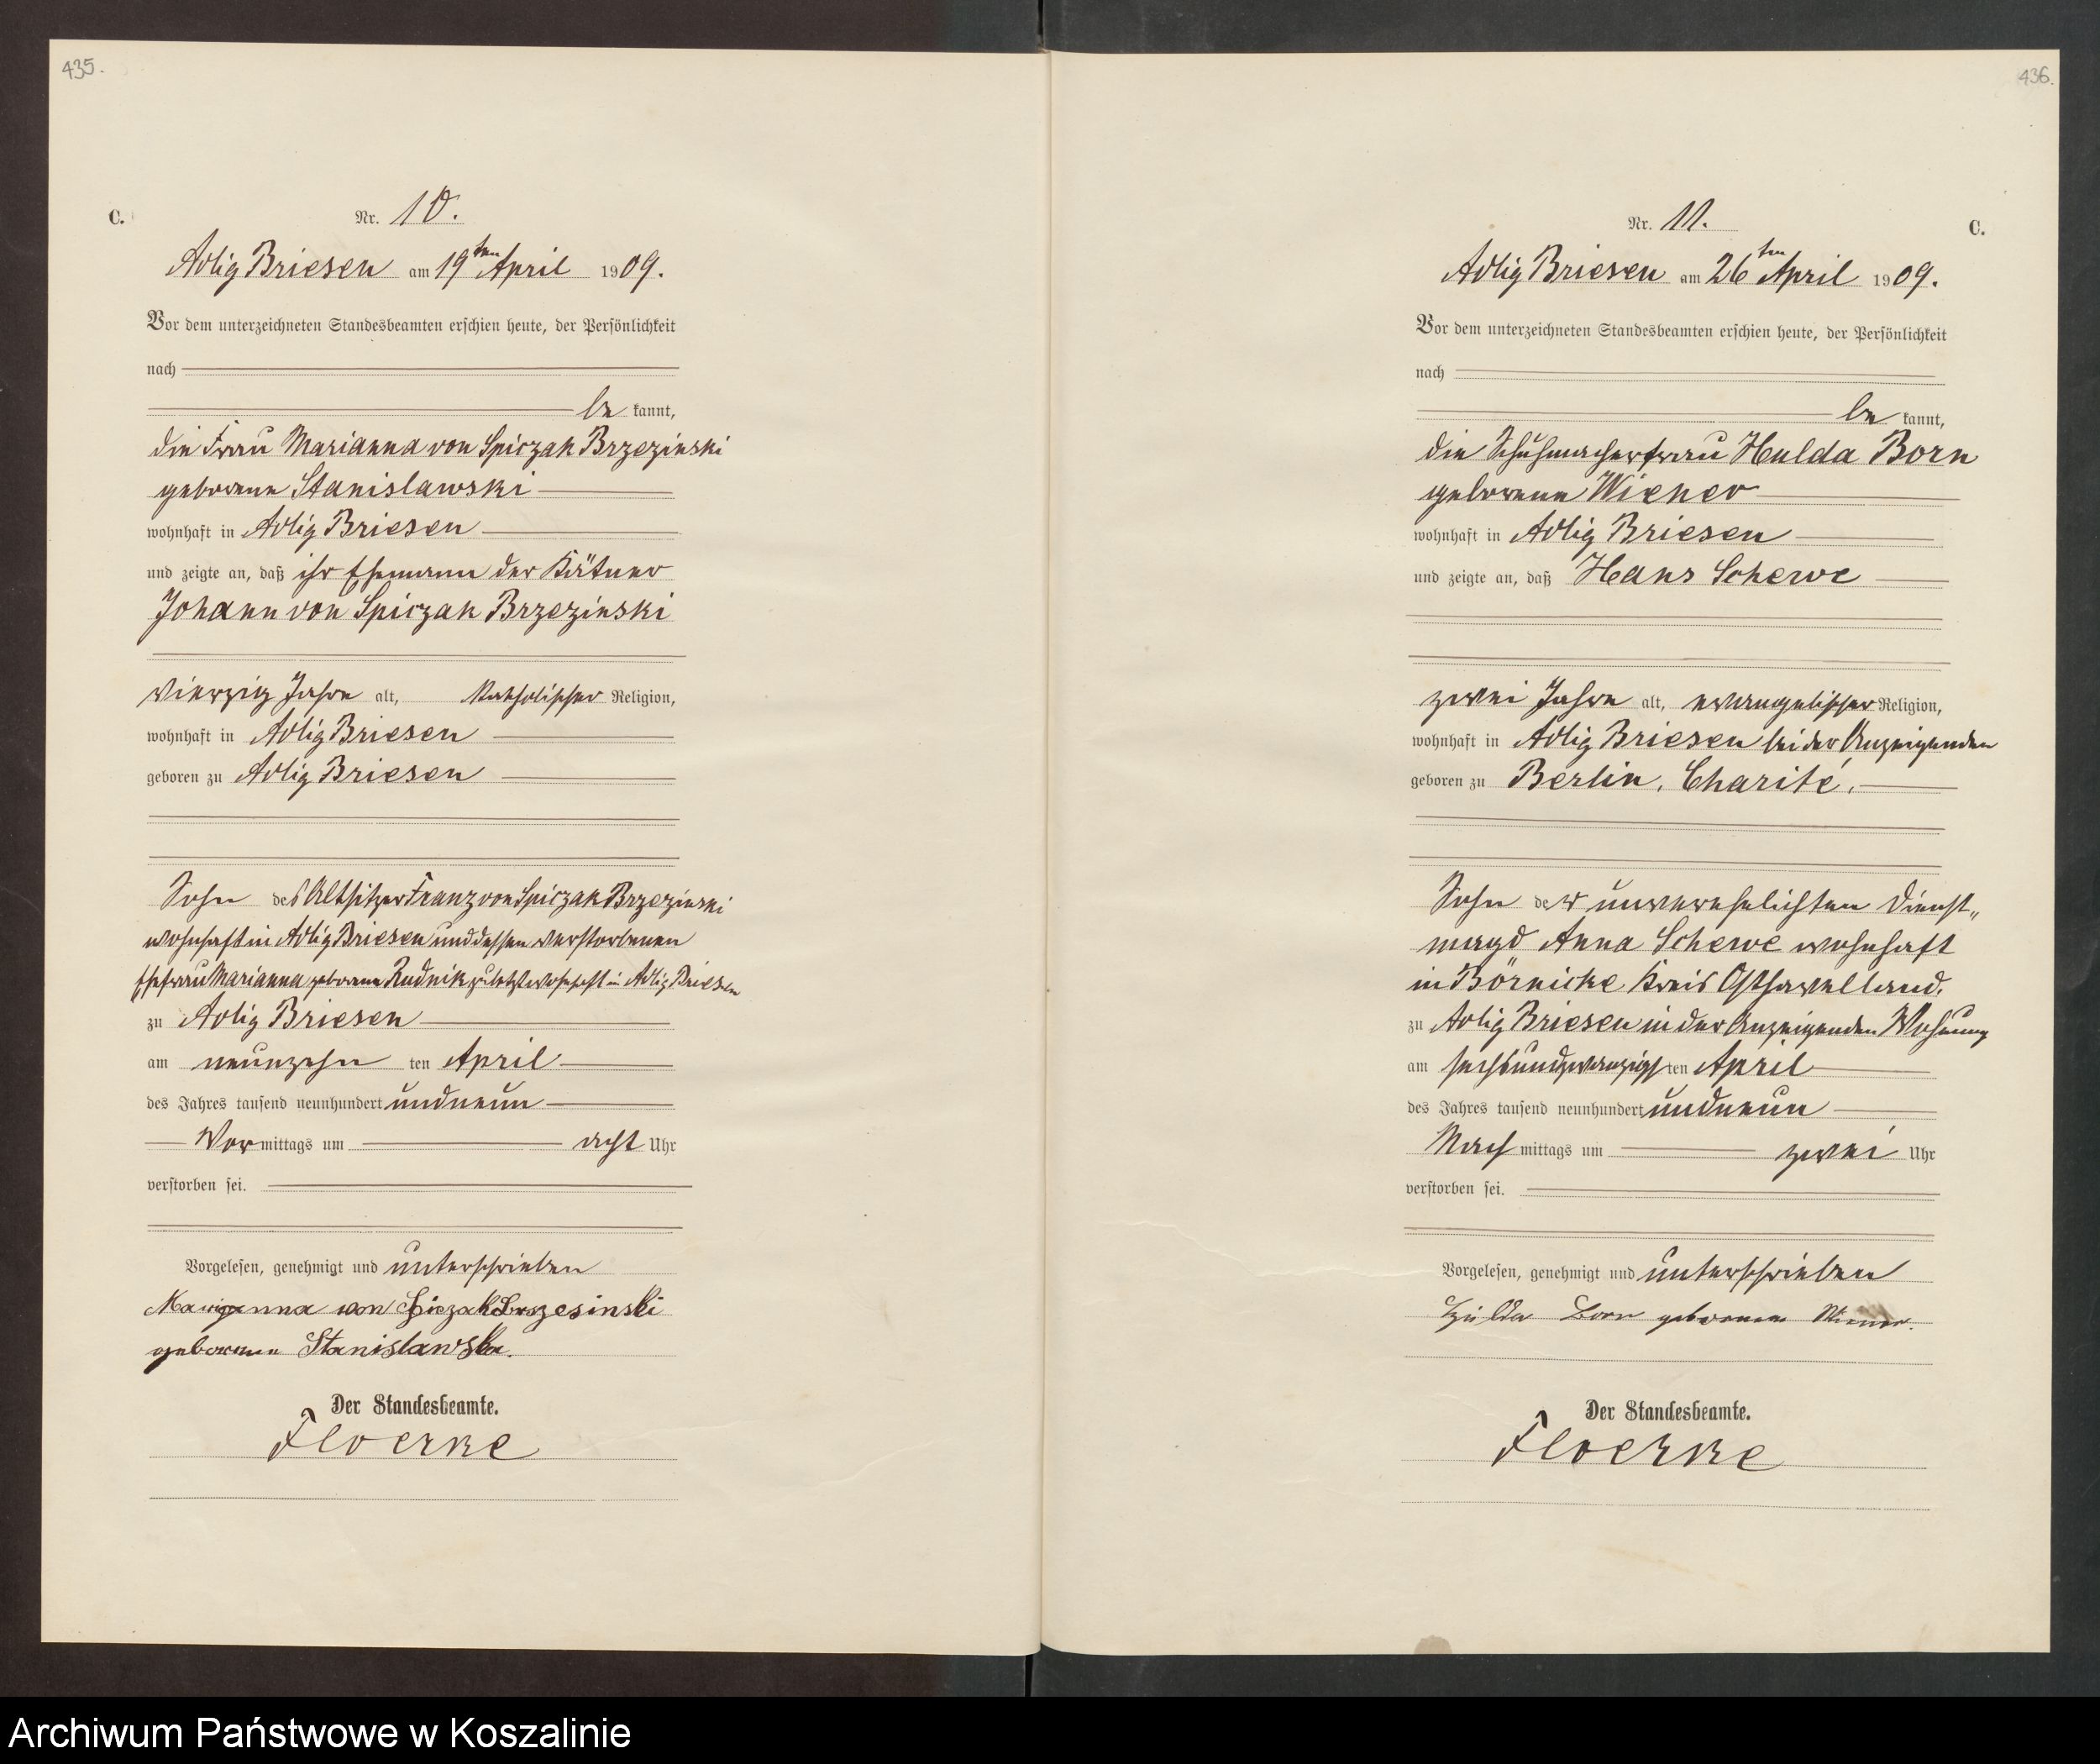 435.
C.
Nr. 10.
Adlig Briesen am 19ten April 1909.
Vor dem unterzeichneten Standesbeamten erschien heute, der Persönlichkeit
nach
be kannt,
die Frau Marianna von Spiczak Brzezinski
geborene Stanislawski
wohnhaft in Adlig Briesen
und zeigte an, daß ihr Ehemann der Kätner
Johann von Spiczak Brzezinski
vierzig Jahre alt, katholischer Religion,
wohnhaft in Adlig Briesen
geboren zu Adlig Briesen
Sohn des Altsitzer Franz von Spiczak Brzezinski
wohnhaft in Adlig Briesen und dessen verstorbenen
Ehefrau Marianna geborene Rudnik zuletzt wohnhaft in Adlig Briesen
zu Adlig Briesen
am neunzehn ten April
des Jahres tausend neunhundert undneun
Vor mittags um acht Uhr
verstorben sei.
Vorgelesen, genehmigt und unterschrieben
Marianna von Spiczak Brzesinski
geborene Stanislawska.
Der Standesbeamte.
Floerke
436.
C.
Nr. 11.
Adlig Briesen am 26ten April 1909.
Vor dem unterzeichneten Standesbeamten erschien heute, der Persönlichkeit
nach
be kannt,
die Schuhmacherfrau Hulda Born
geborene Wiener
wohnhaft in Adlig Briesen
und zeigte an, daß Hans Scherve
zwei Jahre alt, evangelischer Religion,
wohnhaft in Adlig Briesen bei der Anzeigenden
geboren zu Berlin, Charité,
Sohn der unverehelichten Dienst„
magd Anna Scherve wohnhaft
in Börnicke Kreis Osthavelland.
zu Adlig Briesen in der Anzeigenden Wohnung
am sechsundzwanzigs ten April
des Jahres tausend neunhundert undneun
Nach mittags um zwei Uhr
verstorben sei.
Vorgelesen, genehmigt und unterschrieben
Hulda Born geborene Wiener.
Der Standesbeamte.
Floerke
Archiwum Państwowe w Koszalinie